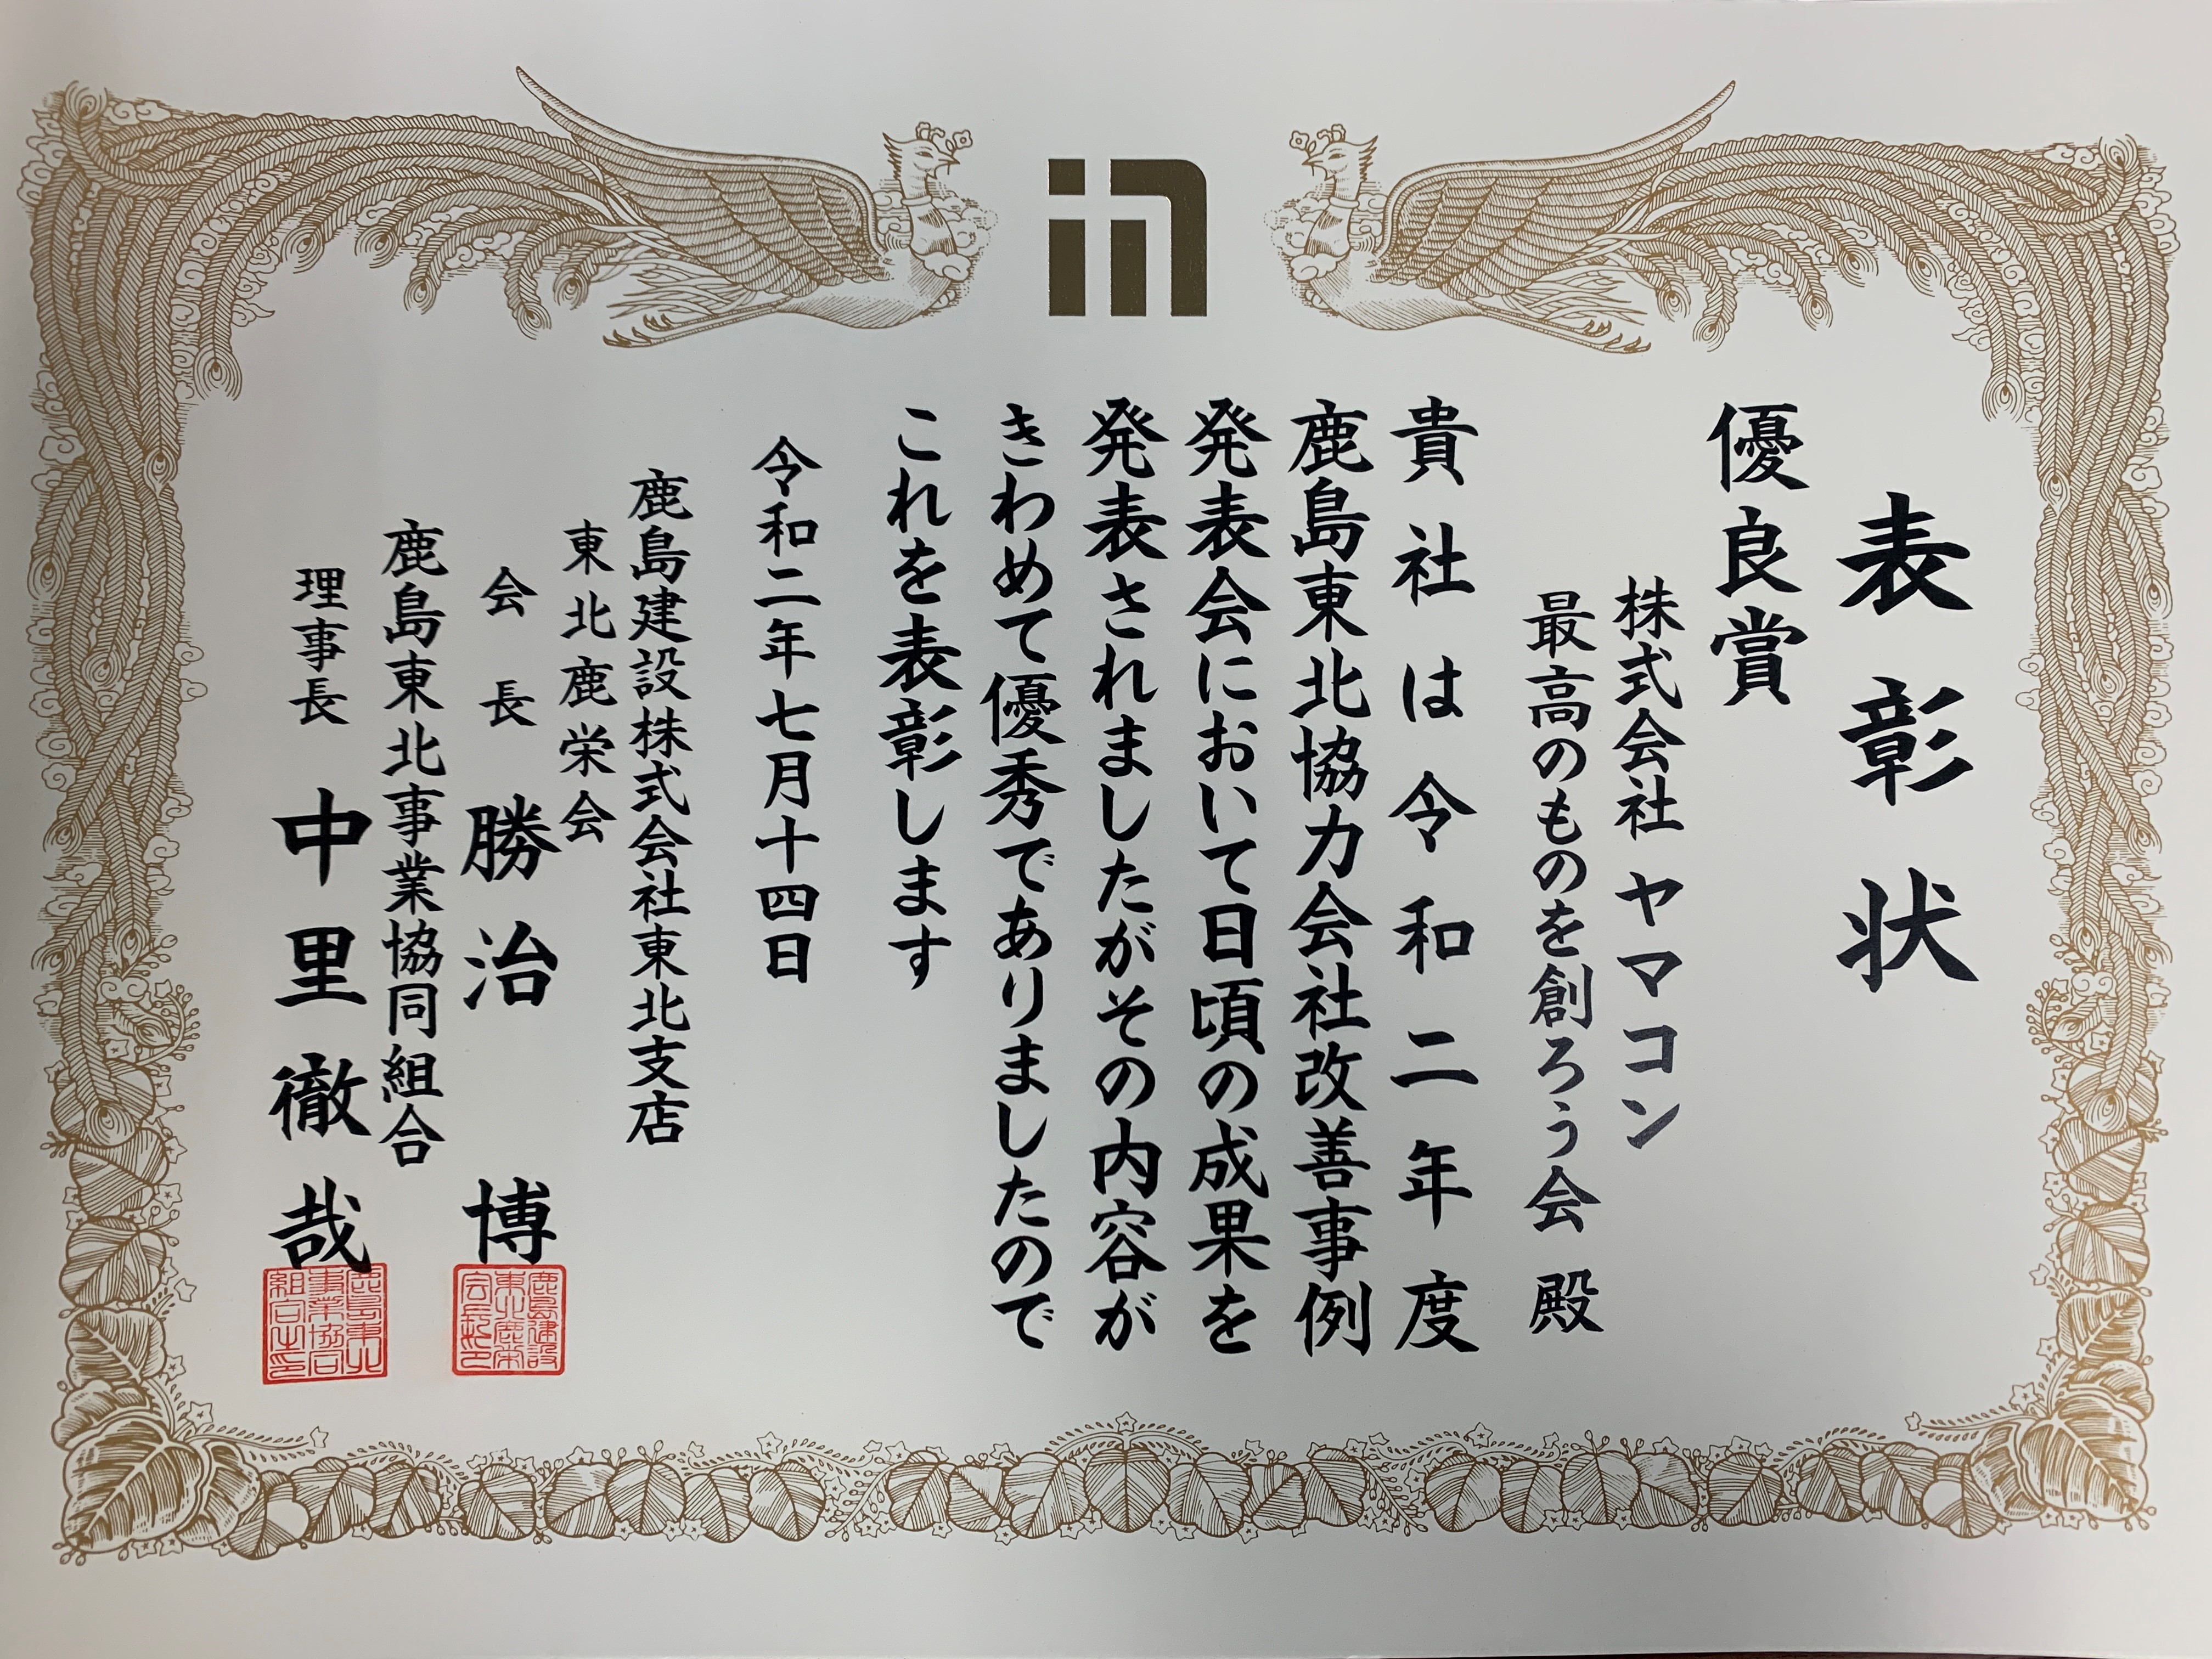 表彰状
優良賞
株式会社ヤマコン
最高のものを創ろう会 殿
貴社は令和二年度
鹿島東北協力会社改善事例
発表会において日頃の成果を
発表されましたがその内容が
きわめて優秀でありましたので
これを表彰します
令和二年七月十四日
鹿島建設株式会社東北支店
東北鹿栄会
会長 勝治 博
鹿島東北事業協同組合
理事長 中里徹哉
鹿島建設東北鹿栄会長印